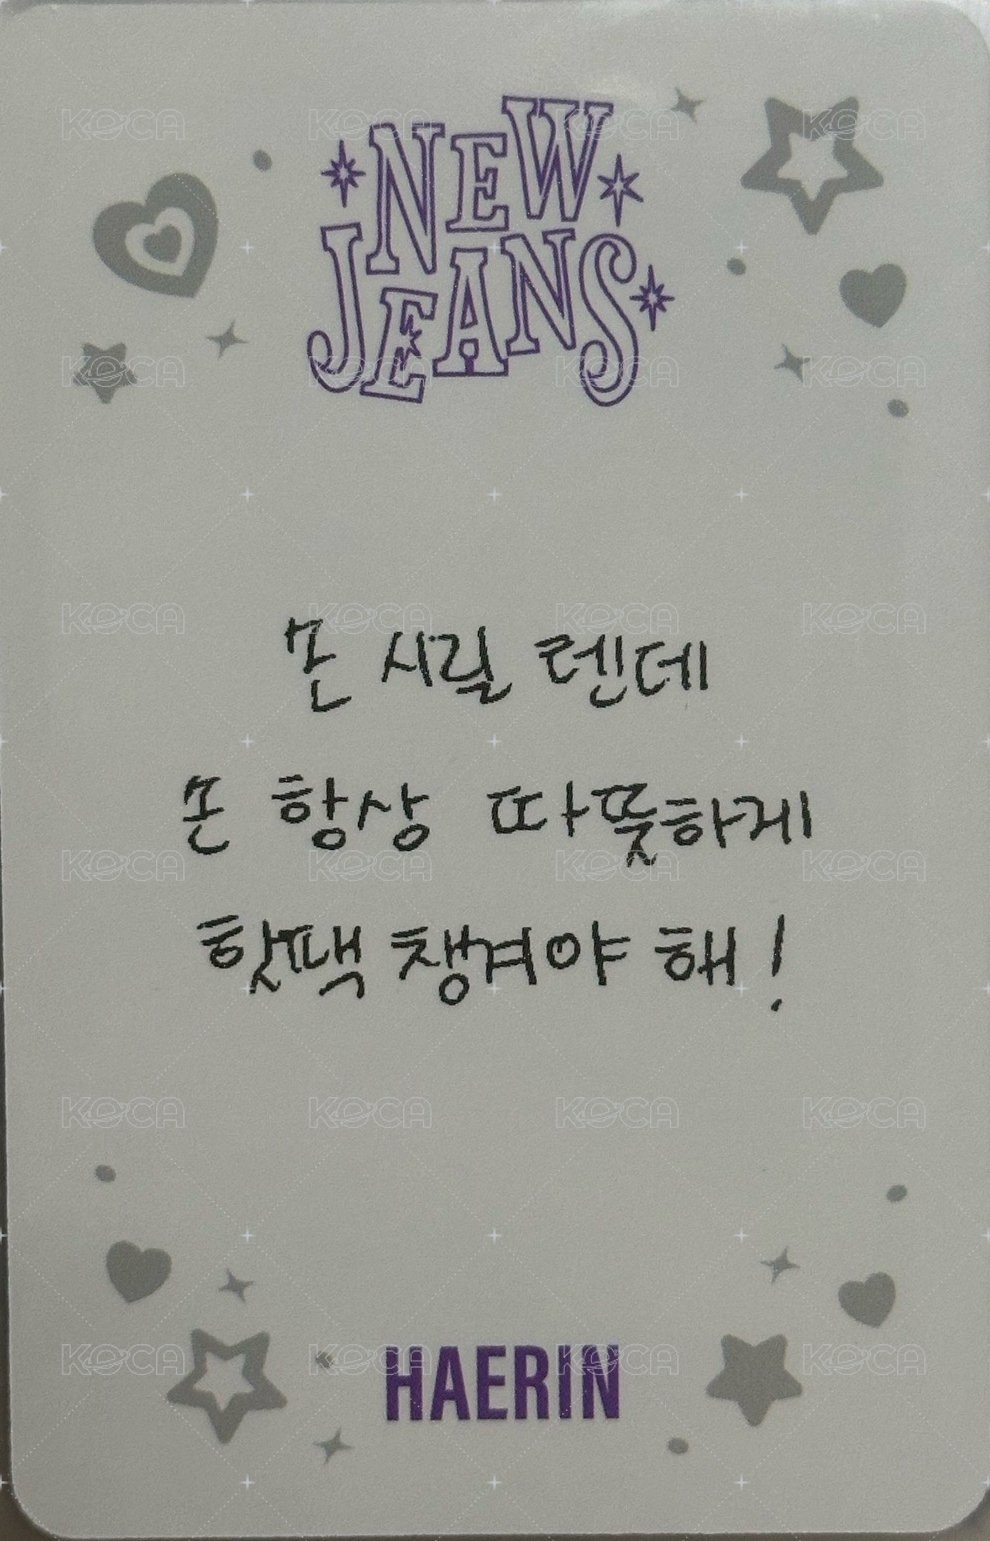 NEW
JEANS
손 시릴 텐데
손 항상 따뜻하게
핫팩 챙겨야 해!
HAERIN
KOCA KOCA KOCA KOCA
KOCA KOCA KOCA KOCA
KOCA KOCA KOCA KOCA
KOCA KOCA KOCA KOCA
KOCA KOCA KOCA KOCA
KOCA KOCA KOCA KOCA